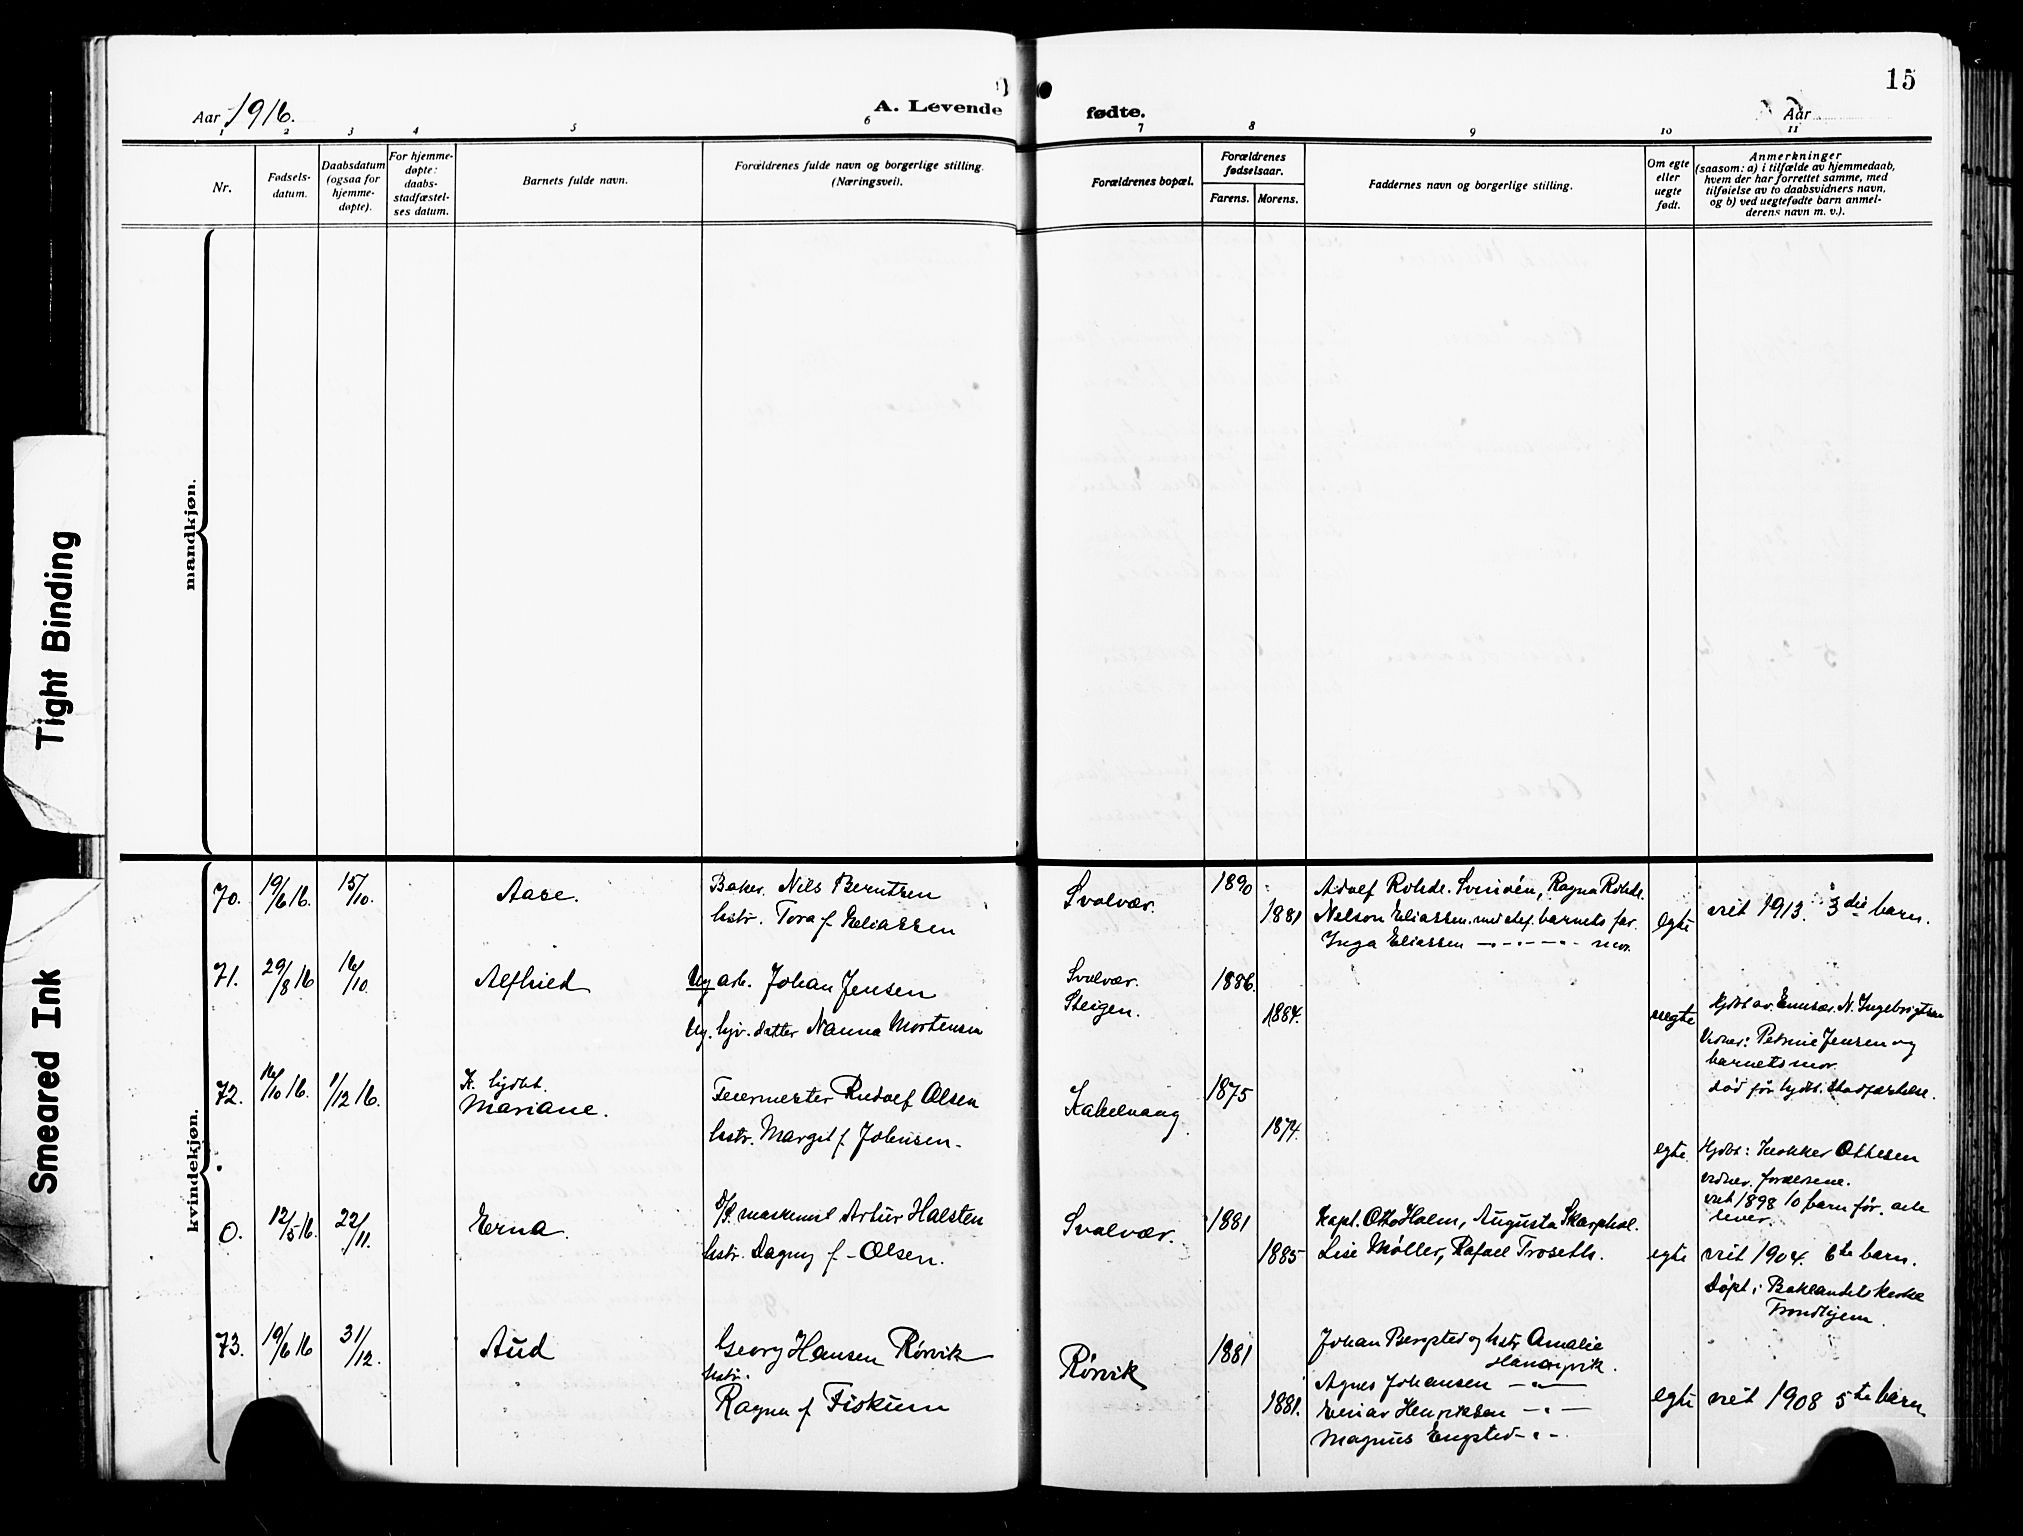 15
Aar 1916.
A. Levende fødte.
Aar
1 2 3 4 5 6 7 8 9 10 11
Nr.
Fødsels-
datum.
Daabsdatum
(ogsaa for
hjemme-
døpte).
For hjemme-
døpte:
daabs-
stadfæstel-
ses datum.
Barnets fulde navn.
Forældrenes fulde navn og borgerlige stilling.
(Næringsvei).
Forældrenes bopæl.
Forældrenes
fødselsaar.
Farens. Morens.
Faddernes navn og borgerlige stilling.
Om egte
eller
uegte
født.
Anmerkninger
(saasom: a) i tilfælde av hjemmedaab,
hvem der har forrettet samme, med
tilføielse av to daabsvidners navn,
og b) ved uegtefødte barn anmel-
derens navn m. v.).
mandkjøn.
Tight Binding
Smeared Ink
kvindekjøn.
70. 19/6 16. 15/10. Aase.
Baker. Nils Berntsen
hstr. Tora f. Eliassen
Svolvær.
1890
1881
Adolf Rohde. Svinöen, Ragna Rohde.
Nelson Eliassen. med stef. barnets far.
Inga Eliassen mor.
egte
viet 1913. 3die barn.
71. 29/8 16 16/10. Alfhild
Ug. arb. Johan Jensen
Ug. hjv. datter Nanna Mortensen
Svolvær.
Steigen.
1886.
1884.
uegte
Hjdbt av. N. Ingebrigtsen
Vidner: Petrine Jensen og
barnets mor.
død før hjdbt. stadfæstelse.
72. 16/10 16. 1/12 16.
K. hjdbt.
Mariane.
Feiermester Rudolf Olsen
hstr. Margit f. Johnsen.
Kabelvaag.
1875
1874.
egte.
Hjdbt: Klokker Ottesen
vidner. forældrene.
viet 1898 10 barn før. alle
lever.
0. 12/5 16. 22/11. Erna.
D/S. maskinist Artur Halsten
hstr. Dagny f. Olsen.
Svolvær.
1881
1885
Kapt. Otto Holm, Augusta Skarphol.
Lise Møller, Rafael Troseth.
egte
viet 1904. 6te barn.
Døpt i Baklandets kirke
Trondhjem.
73. 19/6 16 31/12. Aud
Georg Hansen Rørvik
hstr.
Ragna f. Fiskum
Rørvik
1881
1881.
Johan Bergsted og hstr. Amalie
Agnes Johansen
Einar Henriksen
Magnus Engsted
egte
viet 1908 5te barn